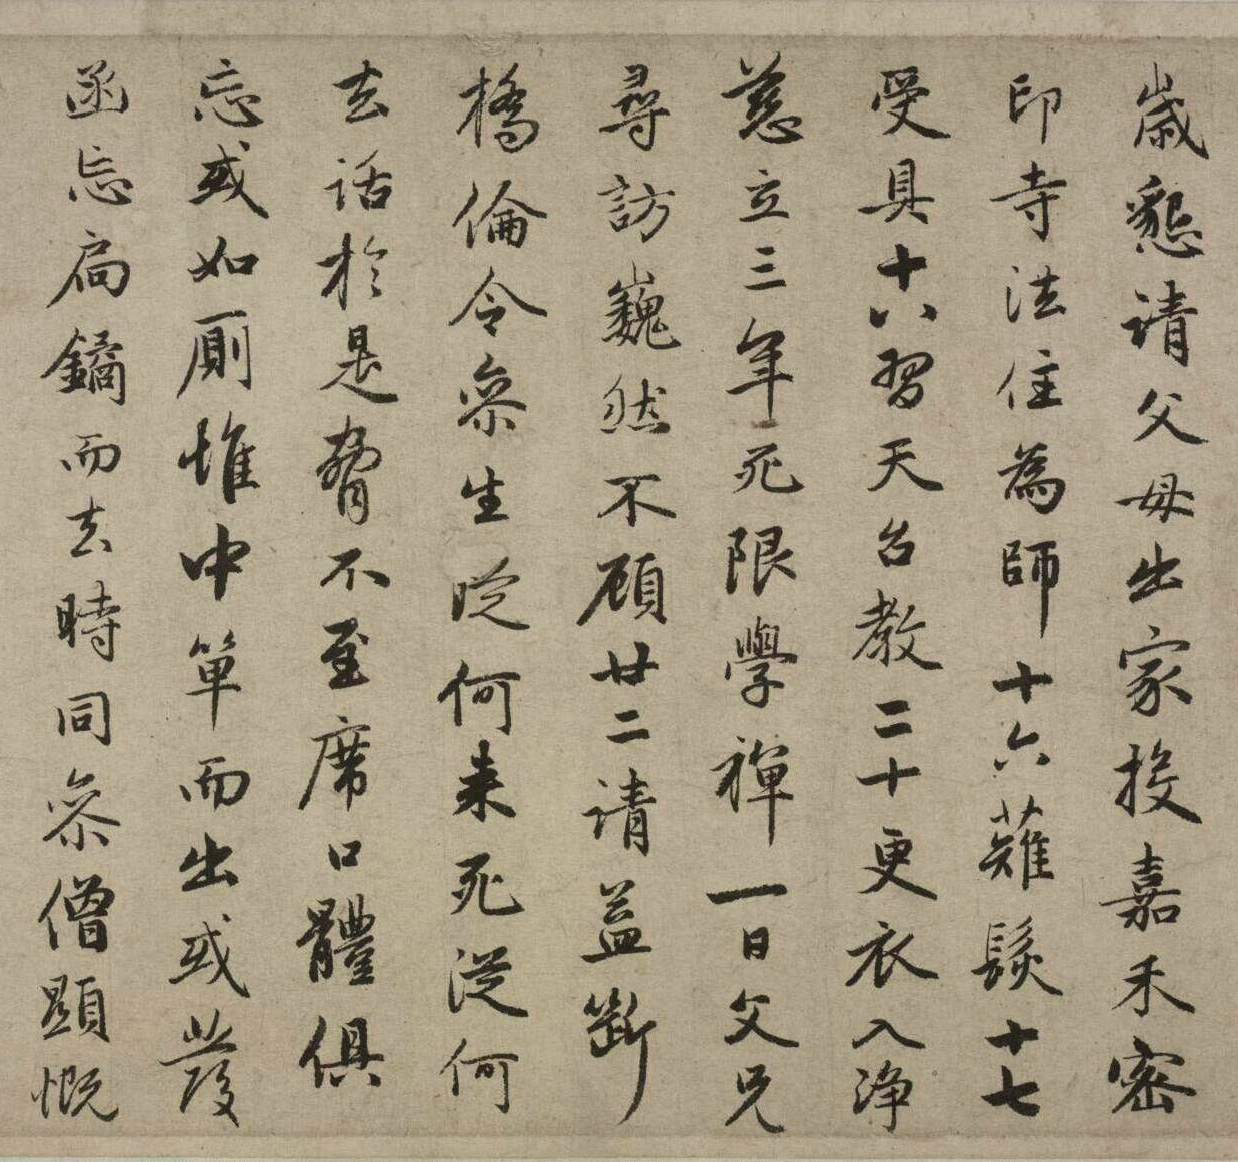 歲懇請父母出家投嘉禾密
印寺法住為師十六薙髮十七
受具十八習天台教二十更衣入淨
慈立三年死限學禪一日父兄
尋訪巍然不顧廿二請益斷
橋倫令叅生從何來死從何
去話於是脅不至席口體俱
忘或如厠惟中單而出或發
函忘扃鐍而去時同叅僧顯慨